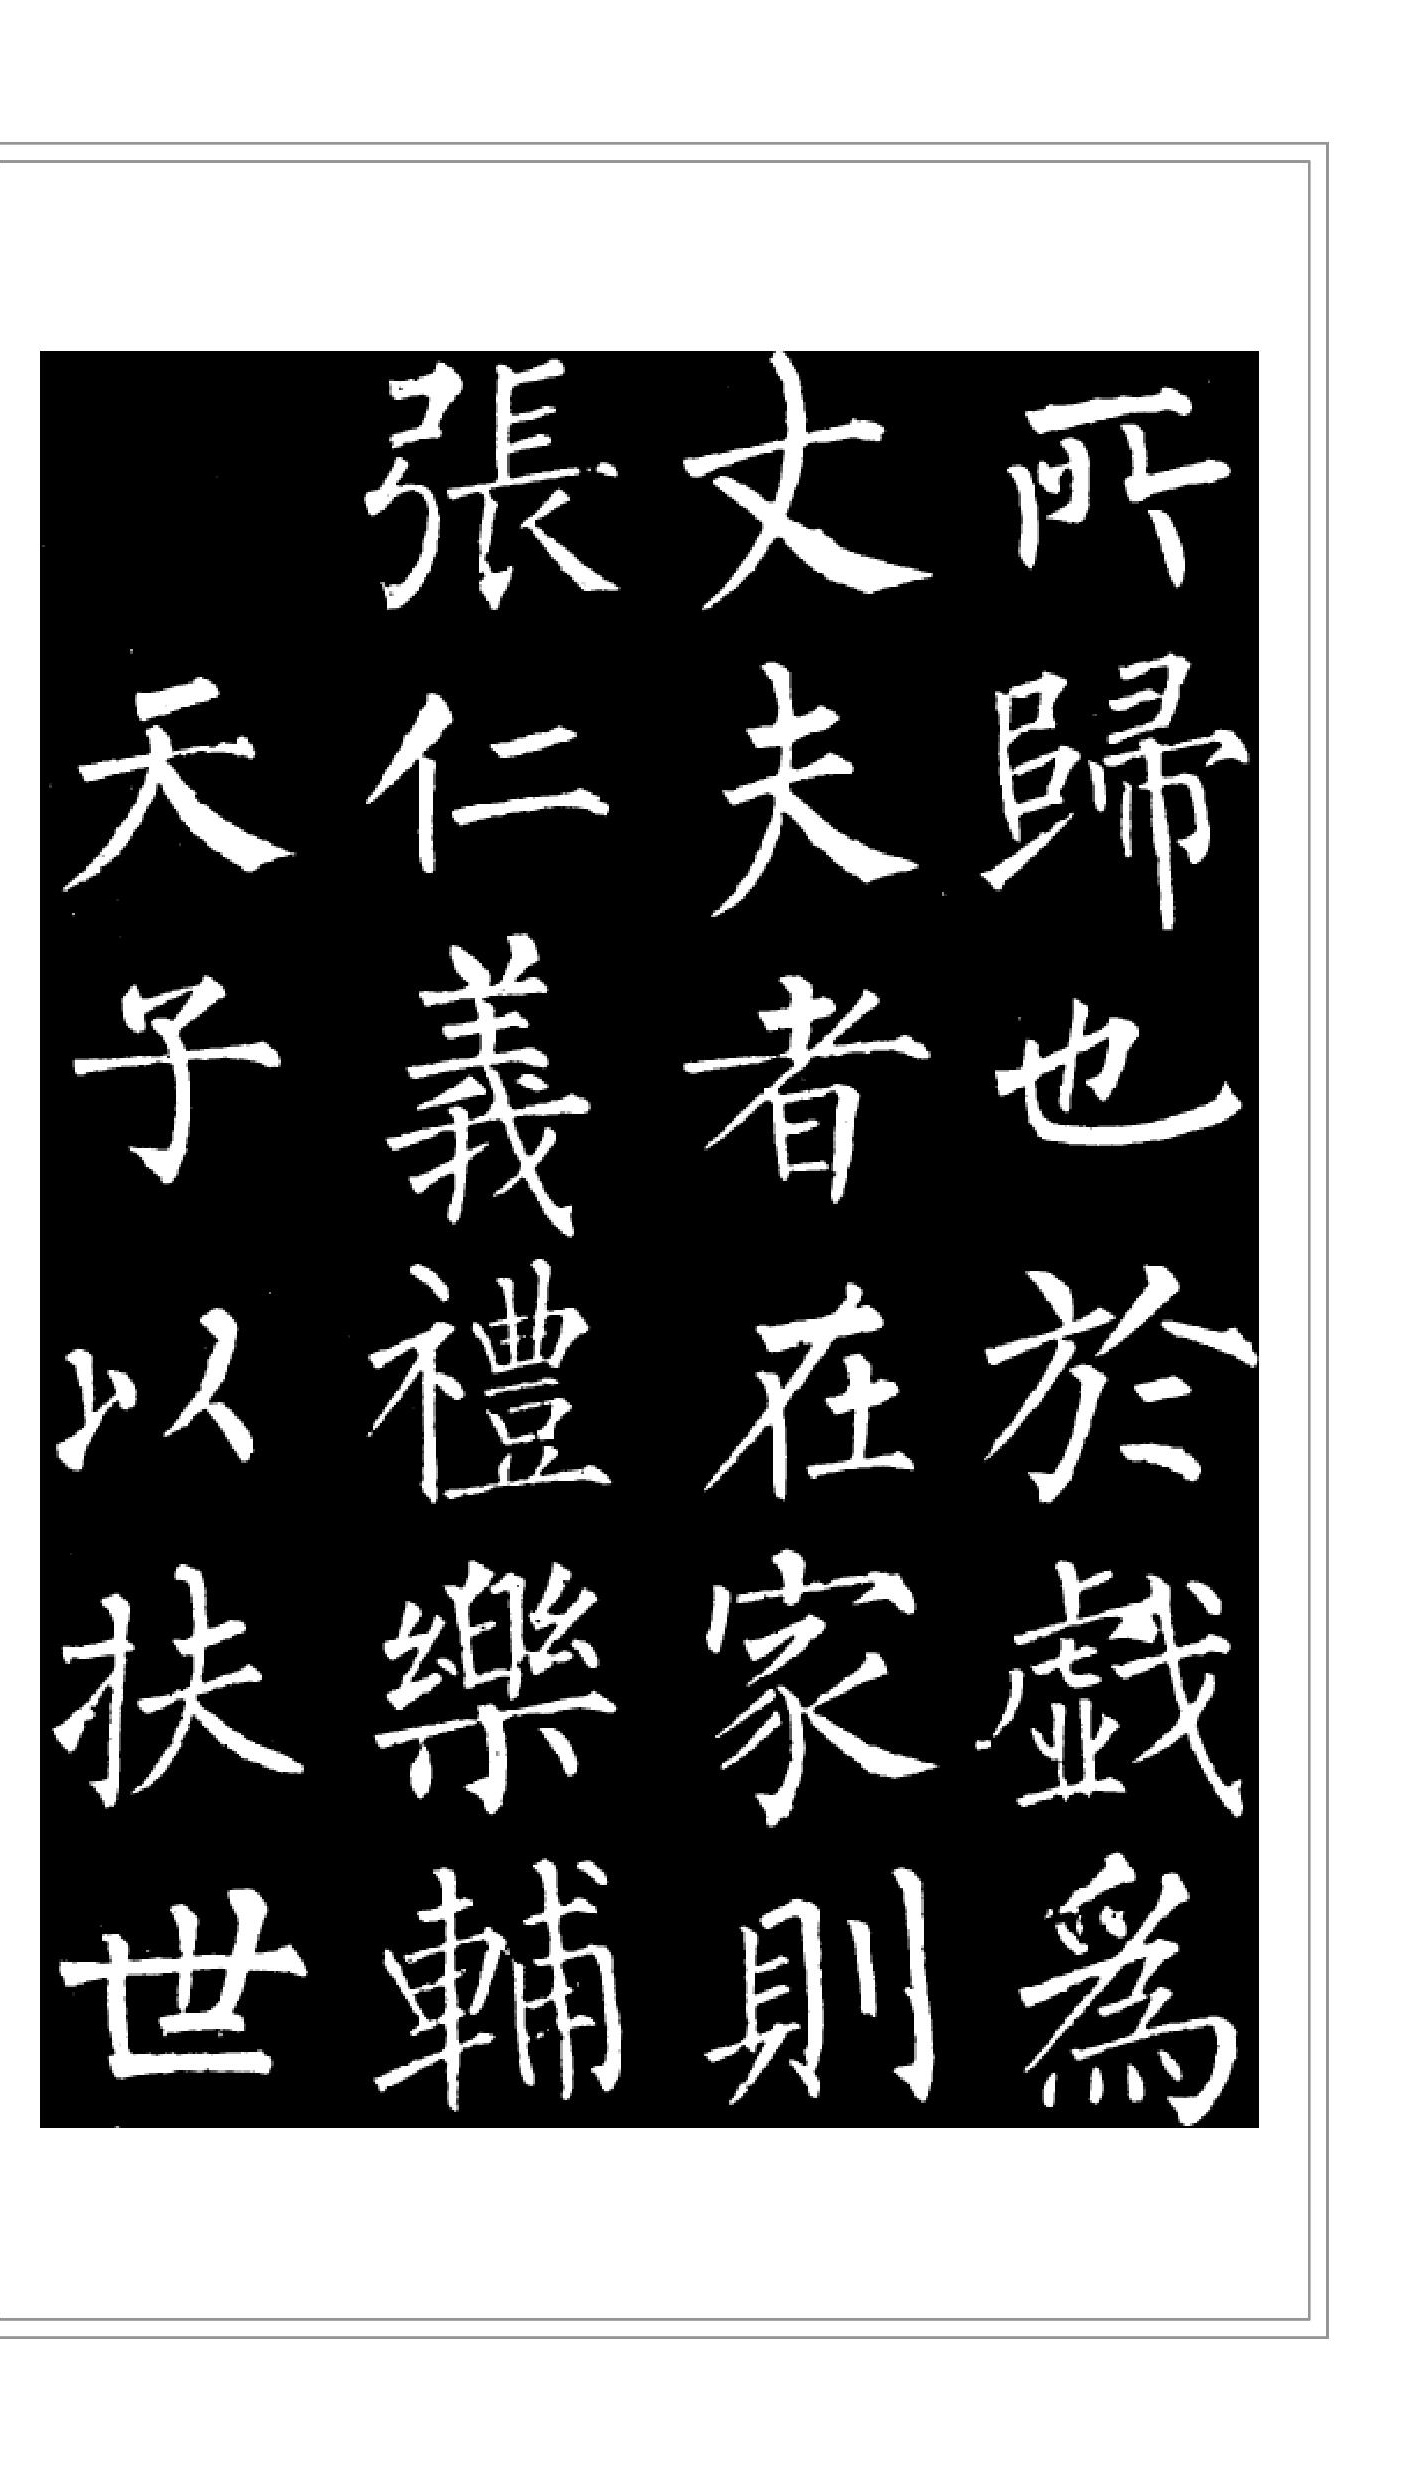 所歸也於戱爲
丈夫者在家則
張仁義禮樂輔
天子以扶世